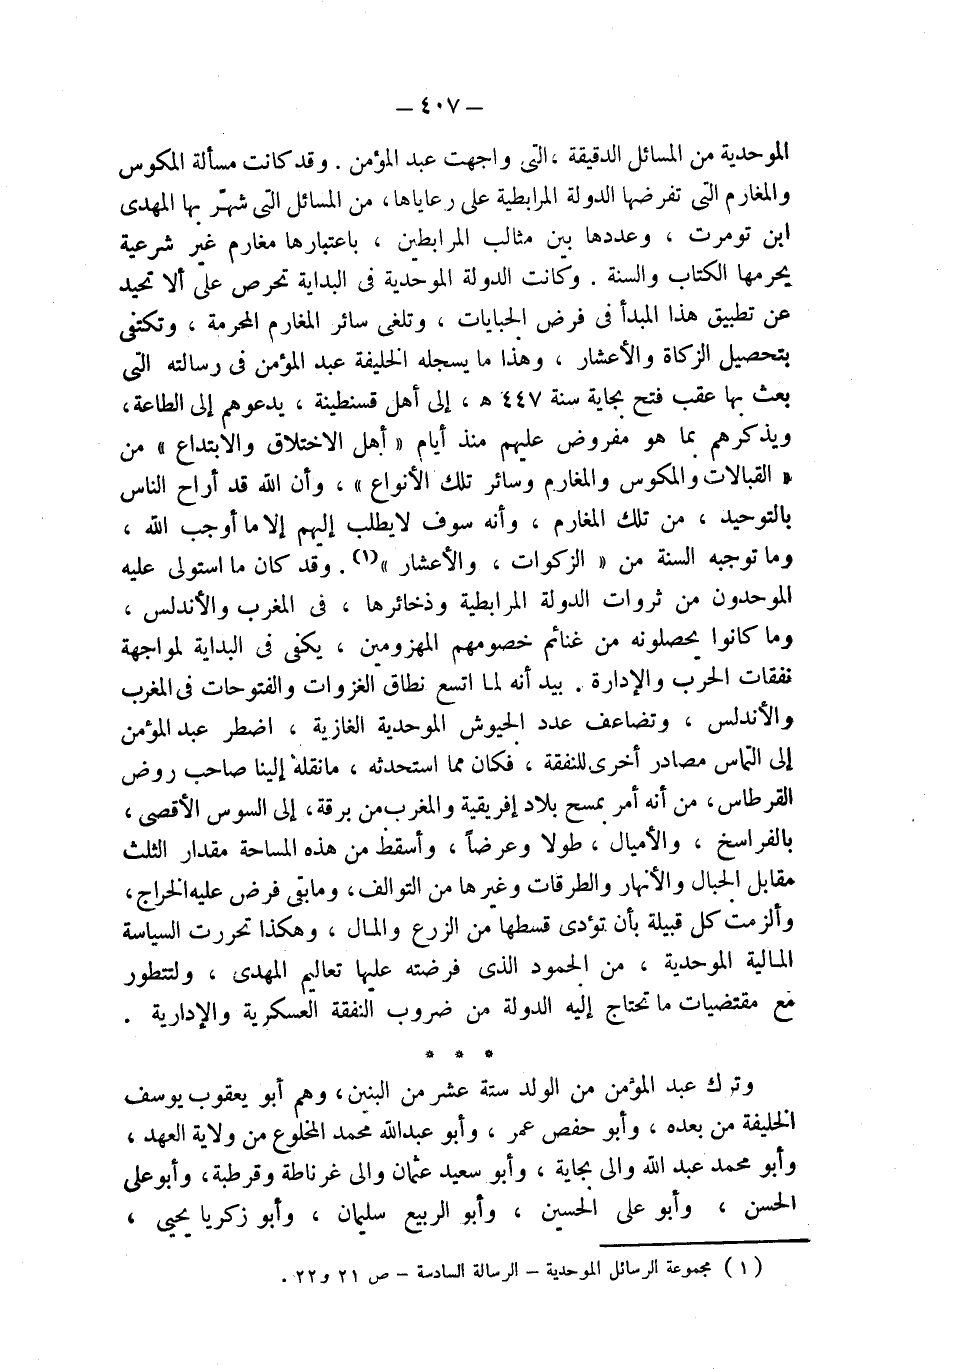 — ٤٠٧ —
الموحدية من المسائل الدقيقة ، التى واجهت عبد المؤمن . وقد كانت مسألة المكوس
والمغارم التى تفرضها الدولة المرابطية على رعاياها ، من المسائل التى شهّر بها المهدى
ابن تومرت ، وعددها بين مثالب المرابطين ، باعتبارها مغارم غير شرعية
يحرمها الكتاب والسنة . وكانت الدولة الموحدية فى البداية تحرص على ألا تحيد
عن تطبيق هذا المبدأ فى فرض الجبايات ، وتلغى سائر المغارم المحرمة ، وتكتفى
بتحصيل الزكاة والأعشار ، وهذا ما يسجله الخليفة عبد المؤمن فى رسالته التى
بعث بها عقب فتح بجاية سنة ٤٤٧ ه ، إلى أهل قسنطينة ، يدعوهم إلى الطاعة ،
ويذكرهم بما هو مفروض عليهم منذ أيام « أهل الاختلاق والابتداع » من
« القبالات والمكوس والمغارم وسائر تلك الأنواع » ، وأن الله قد أراح الناس
بالتوحيد ، من تلك المغارم ، وأنه سوف لايطلب إليهم إلا ما أوجب الله ،
وما توجبه السنة من « الزكوات ، والأعشار »(١) . وقد كان ما استولى عليه
الموحدون من ثروات الدولة المرابطية وذخائرها ، فى المغرب والأندلس ،
وما كانوا يحصلونه من غنائم خصومهم المهزومين ، يكفى فى البداية لمواجهة
نفقات الحرب والإدارة . بيد أنه لما اتسع نطاق الغزوات والفتوحات فى المغرب
والأندلس ، وتضاعف عدد الجيوش الموحدية الغازية ، اضطر عبد المؤمن
إلى التماس مصادر أخرى للنفقة ، فكان مما استحدثه ، مانقله إلينا صاحب روض
القرطاس ، من أنه أمر بمسح بلاد إفريقية والمغرب من برقة ، إلى السوس الأقصى ،
بالفراسخ ، والأميال ، طولا وعرضاً ، وأسقط من هذه المساحة مقدار الثلث
مقابل الجبال والأنهار والطرقات وغيرها من التوالف ، ومابقى فرض عليه الخراج ،
وألزمت كل قبيلة بأن تؤدى قسطها من الزرع والمال ، وهكذا تحررت السياسة
المالية الموحدية ، من الجمود الذى فرضته عليها تعاليم المهدى ، ولتتطور
مع مقتضيات ما تحتاج إليه الدولة من ضروب النفقة العسكرية والإدارية .
* * *
وترك عبد المؤمن من الولد ستة عشر من البنين ، وهم أبو يعقوب يوسف
الخليفة من بعده ، وأبو حفص عمر ، وأبو عبدالله محمد المخلوع من ولاية العهد ،
وأبو محمد عبد الله والى بجاية ، وأبو سعيد عثمان والى غرناطة وقرطبة ، وأبوعلى
الحسن ، وأبو على الحسين ، وأبو الربيع سليمان ، وأبو زكريا يحيى ،
( ١ ) مجموعة الرسائل الموحدية – الرسالة السادسة – ص ٢١ و٢٢ .